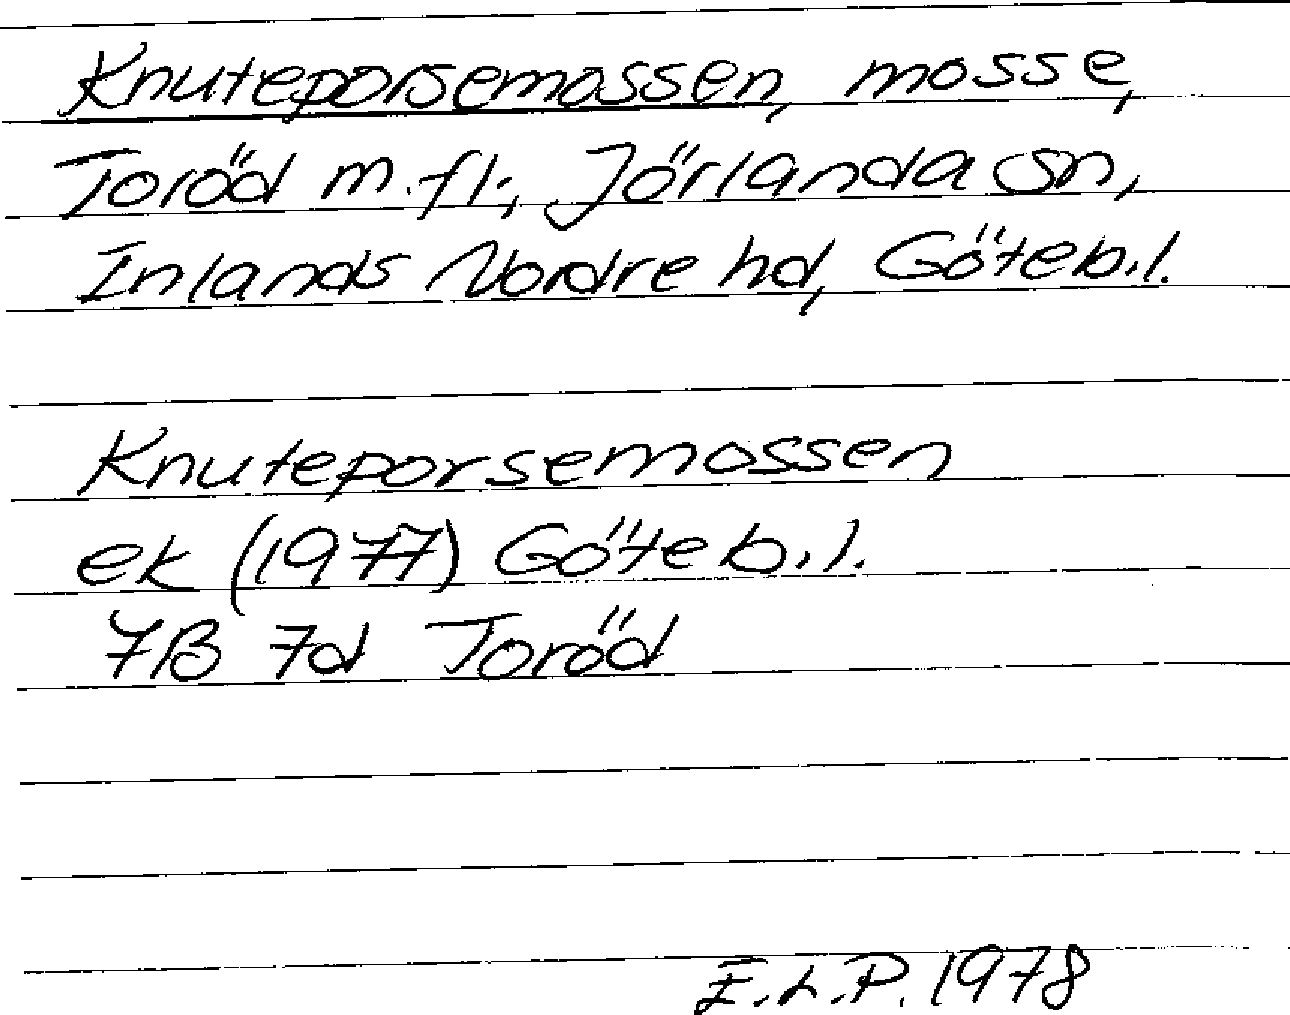 Knuteporsemossen, mosse,
Toröd m.fl., Jörlanda sn,
Inlands Nordre hd, Göteb.l.
Knuteporsemossen
ek (1977) Göteb.l.
7B 7d Toröd
E.L.P. 1978